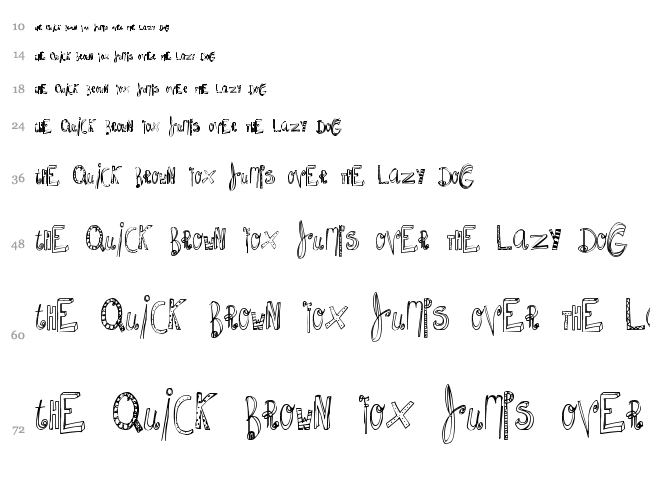 10 tHE QuicK BROWN fox JuMPS OVER tHE LAZY DOG
14 tHE QuicK BROWN fox JuMPS OVER tHE LAZY DOG
18 tHE QuicK BROWN fox JuMPS OVER tHE LAZY DOG
24 tHE QuicK BROWN fox JuMPS OVER tHE LAZY DOG
36 tHE QuicK BROWN fox JuMPS OVER tHE LAZY DOG
48 tHE QuicK BROWN fox JuMPS OVER tHE LAZY DOG
60 tHE QuicK BROWN fox JuMPS OVER tHE
72 tHE QuicK BROWN fox JuMPS OVER